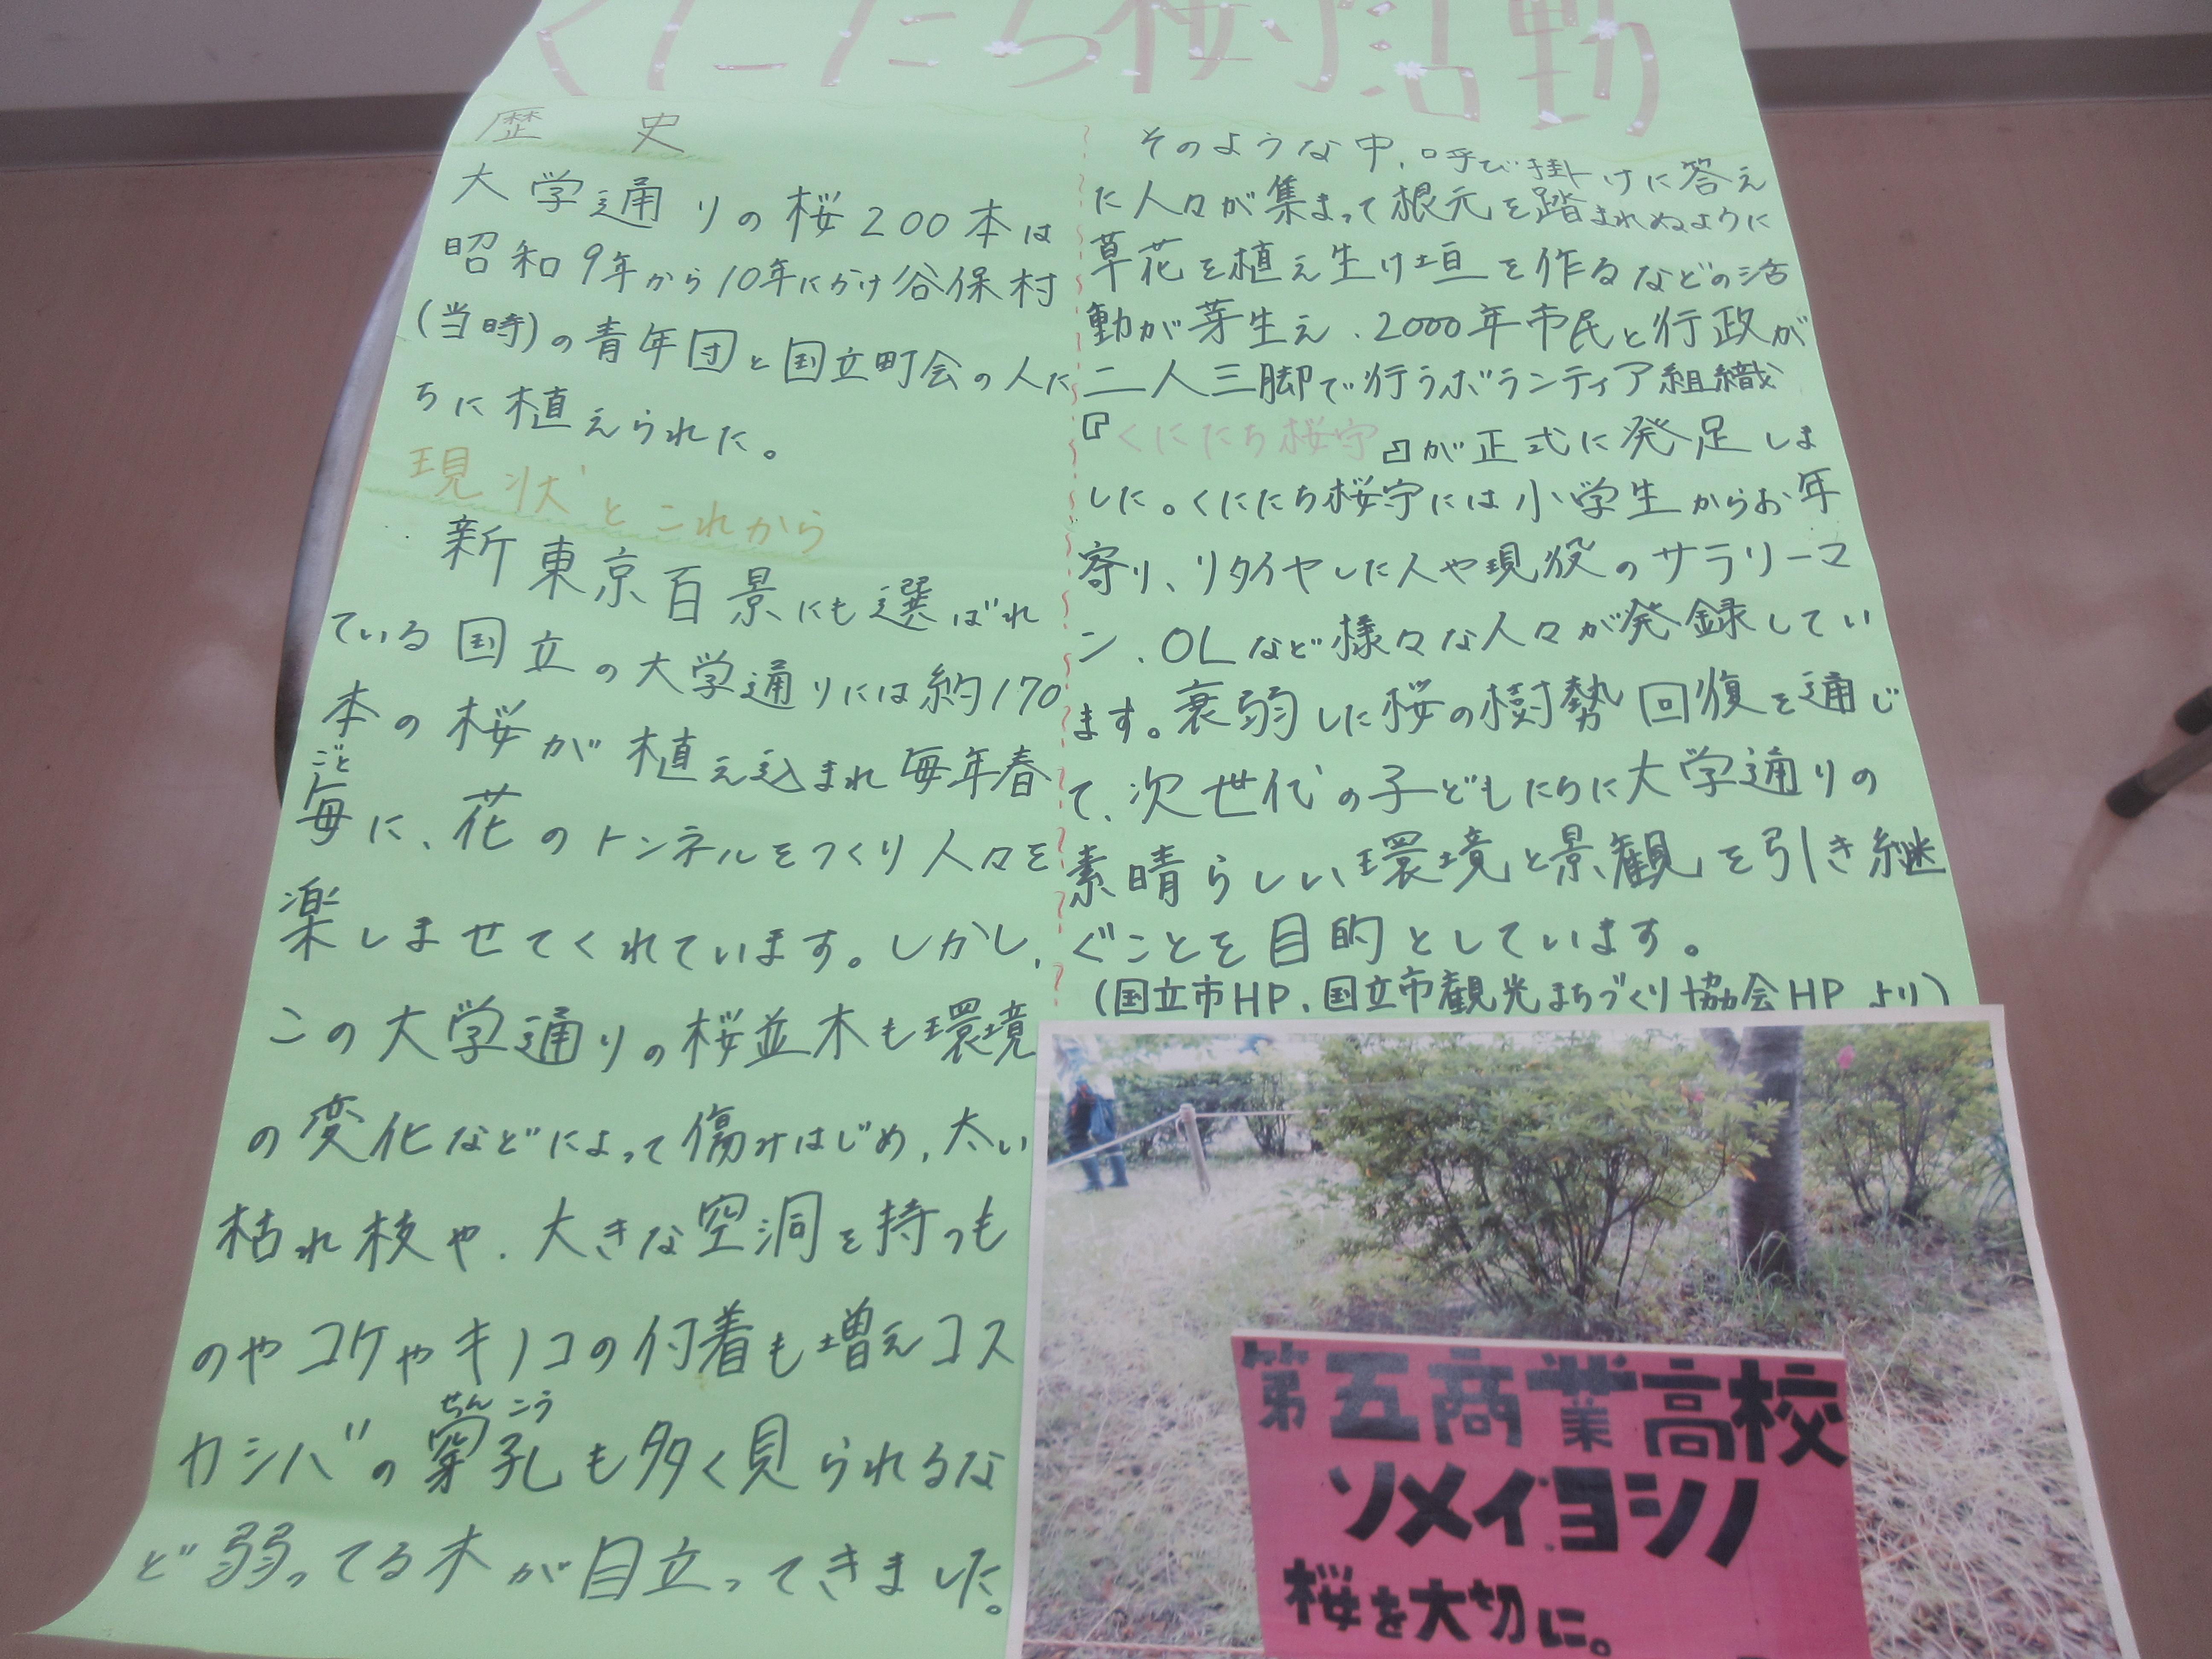 くにたち桜守活動
歴 史
大学通りの桜200本は
昭和9年から10年にかけ谷保村
(当時)の青年団と国立町会の人た
ちに植えられた。
現状とこれから
新東京百景にも選ばれ
ている国立の大学通りには約170
本の桜が植え込まれ毎年春
ごと
毎に、花のトンネルをつくり人々を
楽しませてくれています。しかし、
この大学通りの桜並木も環境
の変化などによって傷みはじめ、太い
枯れ枝や、大きな空洞を持つも
のやコケやキノコの付着も増えコス
せんこう
カシバの穿孔も多く見られるな
ど弱ってる木が目立ってきました。
そのような中、呼び掛けに答え
た人々が集まって根元を踏まれぬように
草花を植え生け垣を作るなどの活
動が芽生え、2000年市民と行政が
二人三脚で行うボランティア組織
『くにたち桜守』が正式に発足しま
した。くにたち桜守には小学生からお年
寄り、リタイヤした人や現役のサラリーマ
ン、OLなど様々な人々が発録してい
ます。衰弱した桜の樹勢回復を通じ
て、次世代の子どもたちに大学通りの
素晴らしい環境と景観を引き継
ぐことを目的としています。
(国立市HP、国立市観光まちづくり協会HPより)
第五商業高校
ソメイヨシノ
桜を大切に。